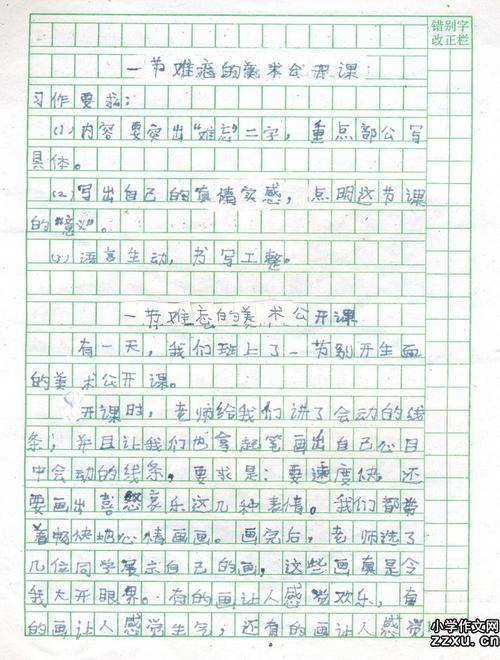 错别字
改正栏
一节难忘的美术公开课
习作要求：
(1)内容要突出“难忘”二字，重点部公写
具体。
(2)写出自己的真情实感，点明这节课
的“意义”。
(3)语言生动，书写工整。
一节难忘的美术公开课
有一天，我们班上了一节别开生面
的美术公开课。
开课时，老师给我们讲了会动的线
条；并且让我们也拿起笔画出自己心目
中会动的线条，要求是：要速度快，还
要画出喜怒哀乐这几种表情。我们都带
着畅快地心情画画。画完后，老师选了
几位同学展示自己的画，这些画真是令
我大开眼界。有的画让人感觉欢乐，有
的画让人感觉生气；还有的画让人感觉
小学作文网
zzxu.cn